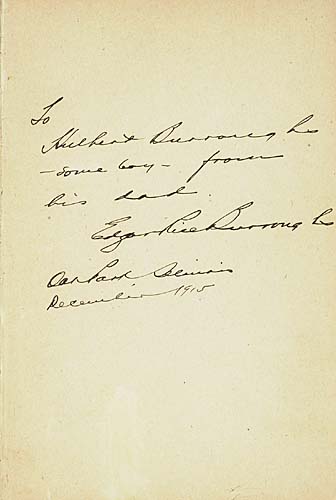 To
Hulbert Burroughs
-some boy- from
his dad.
Edgar Rice Burroughs
Oak Park Illinois
December 1915